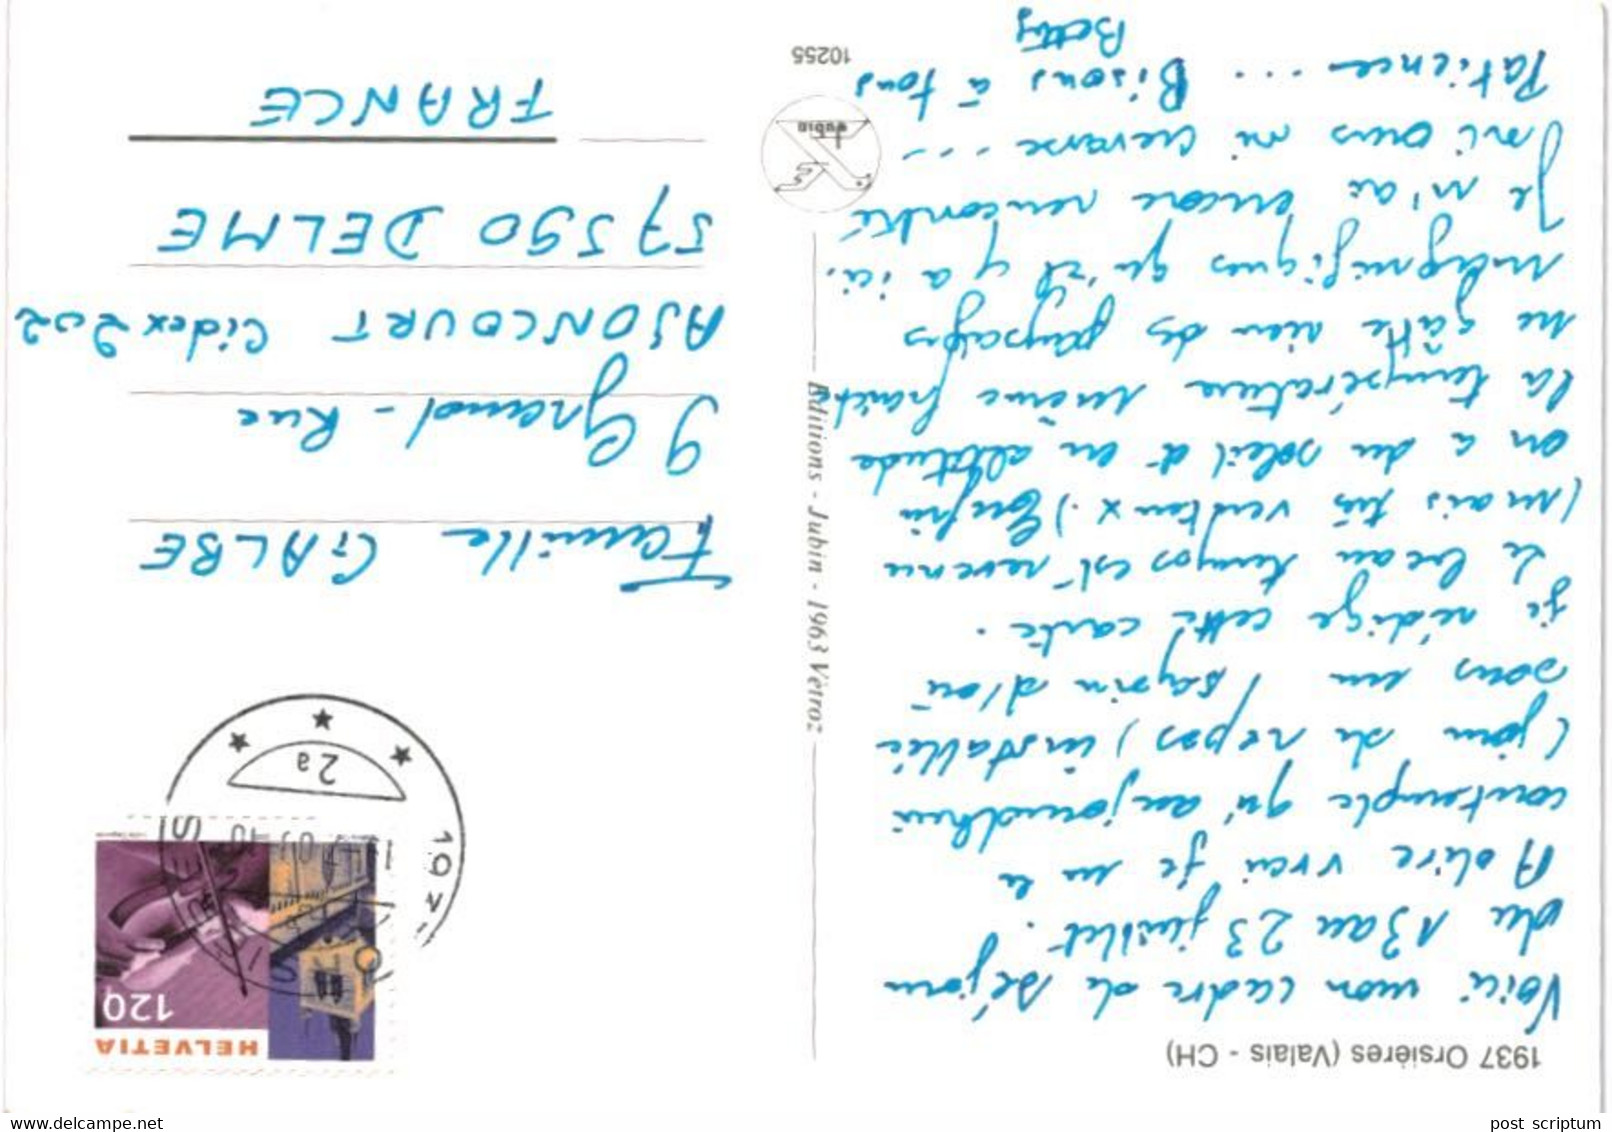 1937 Orsières (Valais - CH)
Voici mon cadre de séjour
du 13 au 23 juillet.
A dire vrai je ne le
contemple qu'aujourd'hui
(jour de repos) installée
sous un sapin d'où
je rédige cette carte.
Le beau temps est revenu
(mais très venteux.) Enfin
on a du soleil et en altitude
la température même fraîche
ne gâte rien des paysages
magnifiques qu'il y a ici.
Je n'ai encore rencontré
ni ours ni crevasse ...
Patience ... Bisous à tous
Betty
HELVETIA
120
2a
Famille GALBE
9 Grand-Rue
AJONCOURT Cidex 202
57590 DELME
FRANCE
Editions - Jubin - 1963 Vétroz
Jubin
10255
delcampe.net
post scriptum